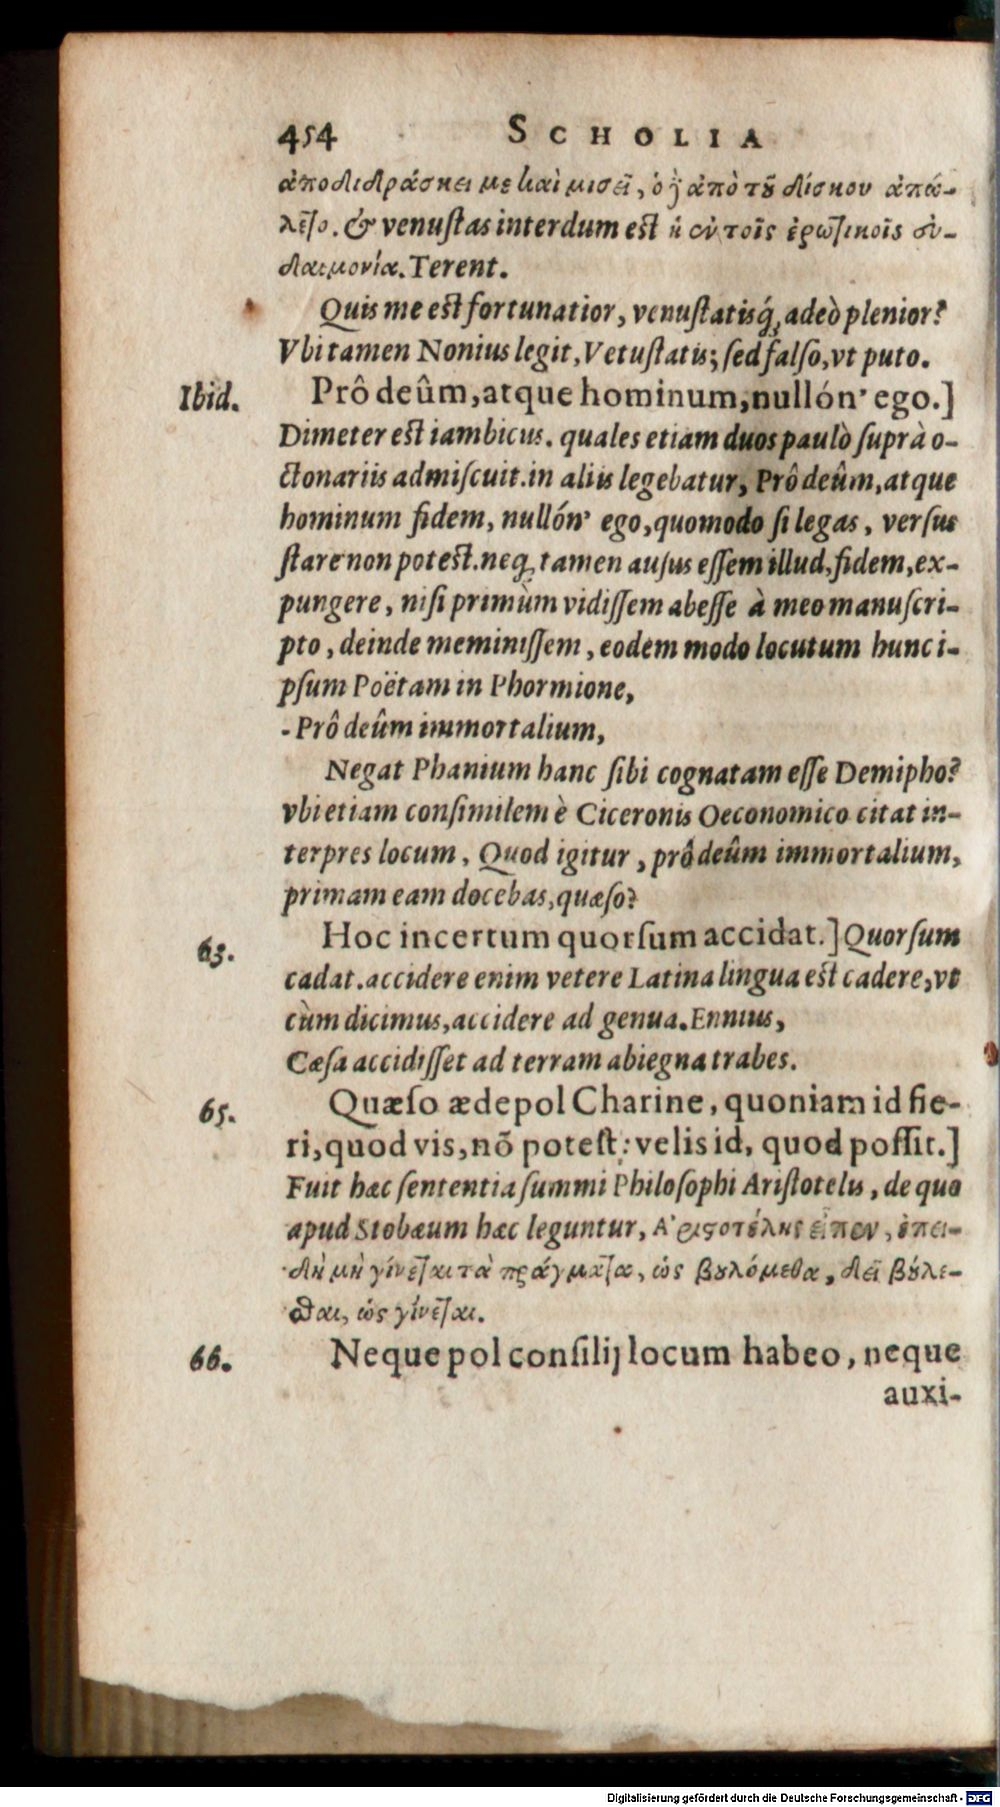 454 SCHOLIA
ἀποδιδράσκει με καὶ μισεῖ, ὁ ἢ ἀπὸ τοῦ δίσκου ἀπώ-
λετο. & venuſtas interdum est ἡ ἐν τοῖς ἐρωτικοῖς εὐ-
δαιμονία. Terent.
Quis me est fortunatior, venuſtatisq́, adeò plenior?
Vbi tamen Nonius legit, Vetuſtatis; ſed falſo, vt puto.
Ibid. Prô deûm, atque hominum, nullón' ego.]
Dimeter est iambicus. quales etiam duos paulò ſuprà o-
ctonariis admiſcuit. in aliis legebatur, Prô deûm, atque
hominum fidem, nullón' ego, quomodo ſi legas, verſus
ſtare non potest. neq, tamen auſus eſſem illud, fidem, ex-
pungere, niſi primùm vidiſſem abeſſe à meo manuſcri-
pto, deinde meminiſſem, eodem modo locutum hunc i-
pſum Poëtam in Phormione,
-Prô deûm immortalium,
Negat Phanium hanc ſibi cognatam eſſe Demipho?
vbi etiam conſimilem è Ciceronis Oeconomico citat in-
terpres locum, Quod igitur, prô deûm immortalium,
primam eam docebas, quæſo?
63. Hoc incertum quorſum accidat.] Quorſum
cadat. accidere enim vetere Latina lingua est cadere, vt
cùm dicimus, accidere ad genua. Ennius,
Cæſa accidiſſet ad terram abiegna trabes.
65. Quæſo ædepol Charine, quoniam id fie-
ri, quod vis, nõ poteſt: velis id, quod poſſit.]
Fuit hæc ſententia ſummi Philoſophi Ariſtotelis, de quo
apud Stobæum hæc leguntur, Ἀριστοτέλης εἶπεν, ἐπει-
δὴ μὴ γίνεται τὰ πράγματα, ὡς βουλόμεθα, δεῖ βούλε-
σθαι, ὡς γίνεται.
66. Neque pol conſilij locum habeo, neque
auxi-
Digitalisierung gefördert durch die Deutsche Forschungsgemeinschaft - DFG